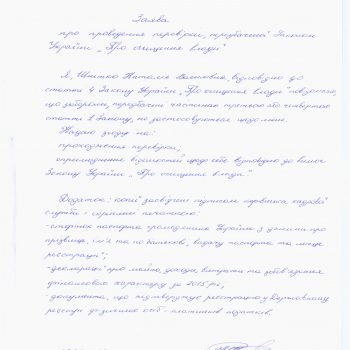 Заява
про проведення перевірки, передбаченої Законом
України „Про очищення влади"
Я, Наталія Василівна, відповідно до
статті 4 Закону України „Про очищення влади" повідомляю,
що заборони, передбачені частиною третьою або четвертою
статті 1 Закону, не застосовуються щодо мене.
Надаю згоду на:
проходження перевірки,
оприлюднення відомостей щодо себе відповідно до вимог
Закону України „Про очищення влади".
Додаток: копії засвідчені підписом керівника кадрової
служби і скріплені печаткою:
-сторінок паспорта громадянина України з даними про
прізвище, ім'я та по батькові, видачу паспорта та місце
реєстрації;
-декларації про майно, доходи, витрати та зобов'язання
фінансового характеру за 2015 рік;
-документа, що підтверджує реєстрацію у Державному
реєстрі фізичних осіб - платників податків.